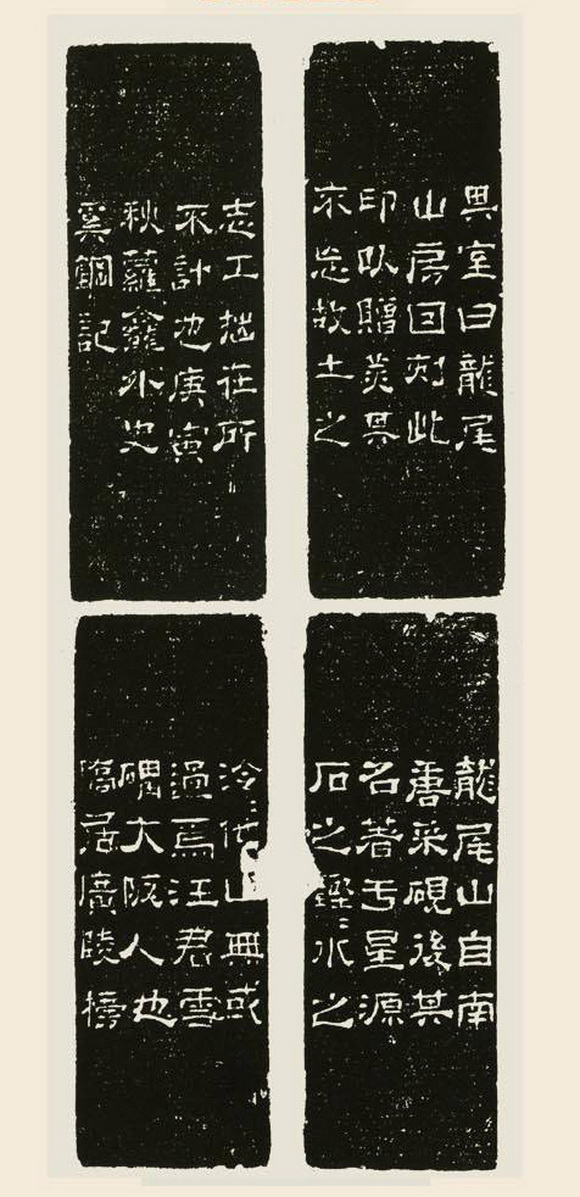 龍尾山自南
唐采硯後其
名著于星源
石之鏗=水之
泠=他山無或
過焉汪君雪
礓大阪人也
僑居廣陵榜
其室曰龍尾
山房因刻此
印以贈美其
不忘故土之
志工拙在所
不計也庚寅
秋蘿龕外史
奚鋼記